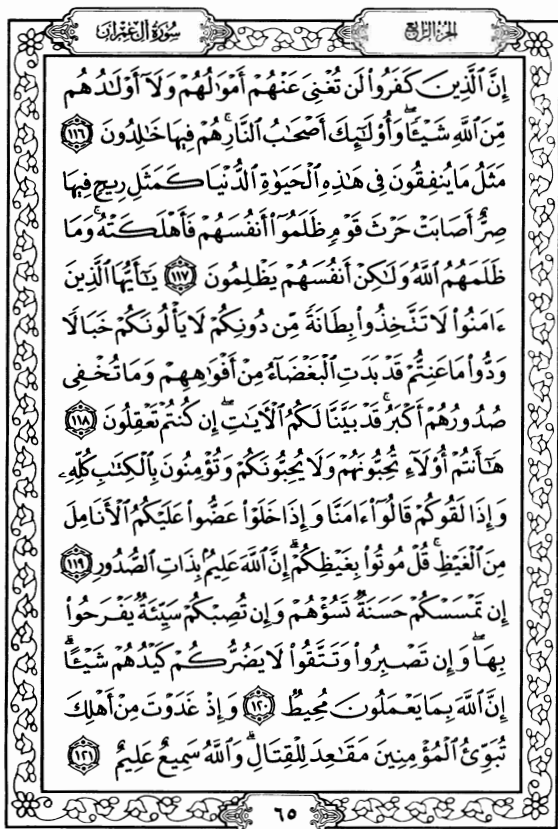 الجزء الرابع
سورة آل عمران
إِنَّ ٱلَّذِينَ كَفَرُوا۟ لَن تُغْنِىَ عَنْهُمْ أَمْوَٰلُهُمْ وَلَآ أَوْلَٰدُهُم
مِّنَ ٱللَّهِ شَيْـًٔا ۖ وَأُو۟لَٰٓئِكَ أَصْحَٰبُ ٱلنَّارِ ۚ هُمْ فِيهَا خَٰلِدُونَ ١١٦
مَثَلُ مَا يُنفِقُونَ فِى هَٰذِهِ ٱلْحَيَوٰةِ ٱلدُّنْيَا كَمَثَلِ رِيحٍ فِيهَا
صِرٌّ أَصَابَتْ حَرْثَ قَوْمٍ ظَلَمُوٓا۟ أَنفُسَهُمْ فَأَهْلَكَتْهُ ۚ وَمَا
ظَلَمَهُمُ ٱللَّهُ وَلَٰكِنْ أَنفُسَهُمْ يَظْلِمُونَ ١١٧ يَٰٓأَيُّهَا ٱلَّذِينَ
ءَامَنُوا۟ لَا تَتَّخِذُوا۟ بِطَانَةً مِّن دُونِكُمْ لَا يَأْلُونَكُمْ خَبَالًا
وَدُّوا۟ مَا عَنِتُّمْ قَدْ بَدَتِ ٱلْبَغْضَآءُ مِنْ أَفْوَٰهِهِمْ وَمَا تُخْفِى
صُدُورُهُمْ أَكْبَرُ ۚ قَدْ بَيَّنَّا لَكُمُ ٱلْـَٔايَٰتِ ۖ إِن كُنتُمْ تَعْقِلُونَ ١١٨
هَٰٓأَنتُمْ أُو۟لَآءِ تُحِبُّونَهُمْ وَلَا يُحِبُّونَكُمْ وَتُؤْمِنُونَ بِٱلْكِتَٰبِ كُلِّهِۦ
وَإِذَا لَقُوكُمْ قَالُوٓا۟ ءَامَنَّا وَإِذَا خَلَوْا۟ عَضُّوا۟ عَلَيْكُمُ ٱلْأَنَامِلَ
مِنَ ٱلْغَيْظِ ۚ قُلْ مُوتُوا۟ بِغَيْظِكُمْ ۗ إِنَّ ٱللَّهَ عَلِيمٌۢ بِذَاتِ ٱلصُّدُورِ ١١٩
إِن تَمْسَسْكُمْ حَسَنَةٌ تَسُؤْهُمْ وَإِن تُصِبْكُمْ سَيِّئَةٌ يَفْرَحُوا۟
بِهَا ۖ وَإِن تَصْبِرُوا۟ وَتَتَّقُوا۟ لَا يَضُرُّكُمْ كَيْدُهُمْ شَيْـًٔا ۗ
إِنَّ ٱللَّهَ بِمَا يَعْمَلُونَ مُحِيطٌ ١٢٠ وَإِذْ غَدَوْتَ مِنْ أَهْلِكَ
تُبَوِّئُ ٱلْمُؤْمِنِينَ مَقَٰعِدَ لِلْقِتَالِ ۗ وَٱللَّهُ سَمِيعٌ عَلِيمٌ ١٢١
٦٥